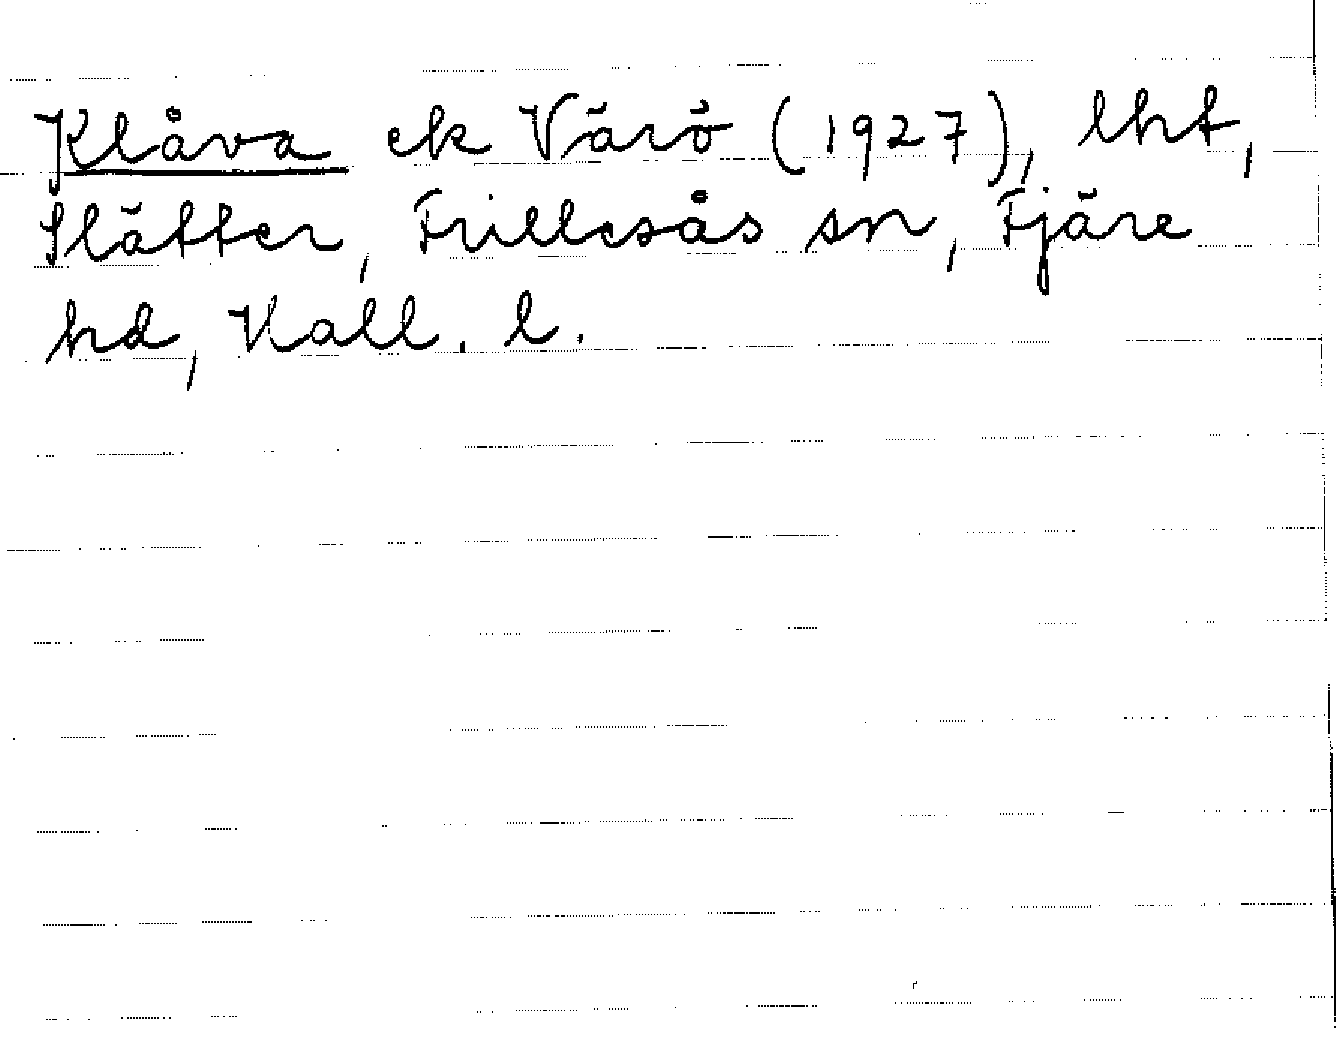 Klåva ek Värö (1927), lht,
Slätter, Frillesås sn, Fjäre
hd, Hall. l.